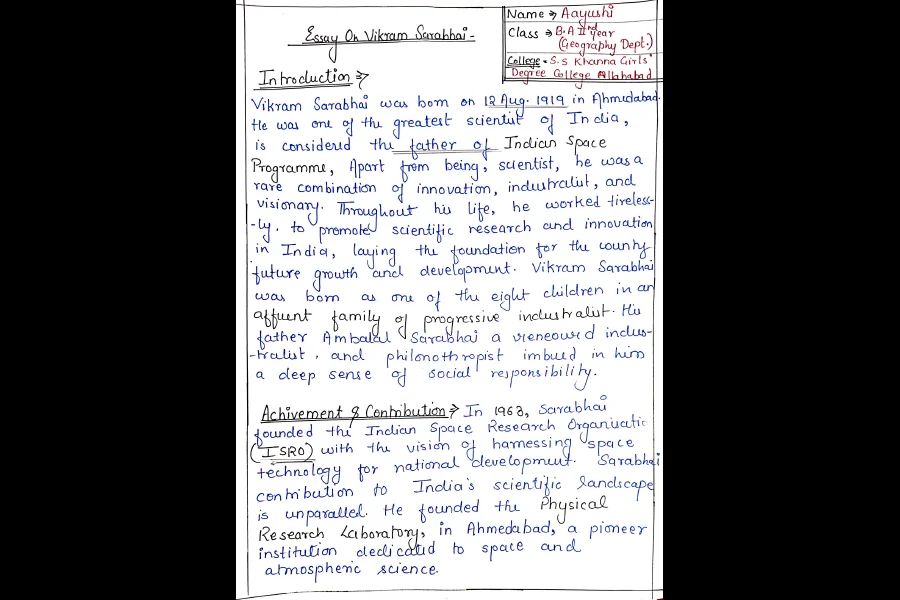 Essay On Vikram Sarabhai -
Name → Aayushi
Class → B.A IInd year
(Geography Dept.)
College - S.S Khanna Girls'
Degree College Allahabad
Introduction →
Vikram Sarabhai was born on 12 Aug. 1919 in Ahmedabad.
He was one of the greatest scientist of India,
is considered the father of Indian Space
Programme, Apart from being, scientist, he was a
rare combination of innovation, industralist, and
visionary. Throughout his life, he worked tireless-
-ly. to promote scientific research and innovation
in India, laying the foundation for the county
future growth and development. Vikram Sarabhai
was born as one of the eight children in an
affuent family of progressive industralist. His
father Ambalal Sarabhai a reneowed indus-
-tralist. and philonothropist imbued in him
a deep sense of social responsibility.
Achivement & Contribution → In 1963, Sarabhai
founded the Indian Space Research
(ISRO) with the vision of harnessing space
technology for national development. Sarabhai
contribution to India's scientific landscape
is unparalled. He founded the Physical
Research Laboratory, in Ahmedabad, a pioneer
institution dedicated to space and
atmospheric science.